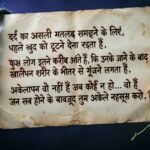 दर्द का असली मतलब समझने के लिए,
पहले खुद को टूटने देना पड़ता हैं,
कुछ लोग इतने करीब आते हैं, कि उनके जाने के बाद
खालीपन शरीर के भीतर से गूंजने लगता है,
अकेलापन वो नहीं है जब कोई न हो... वो है
जन सब होने के बावजूद तुम अकेले महसूस करो